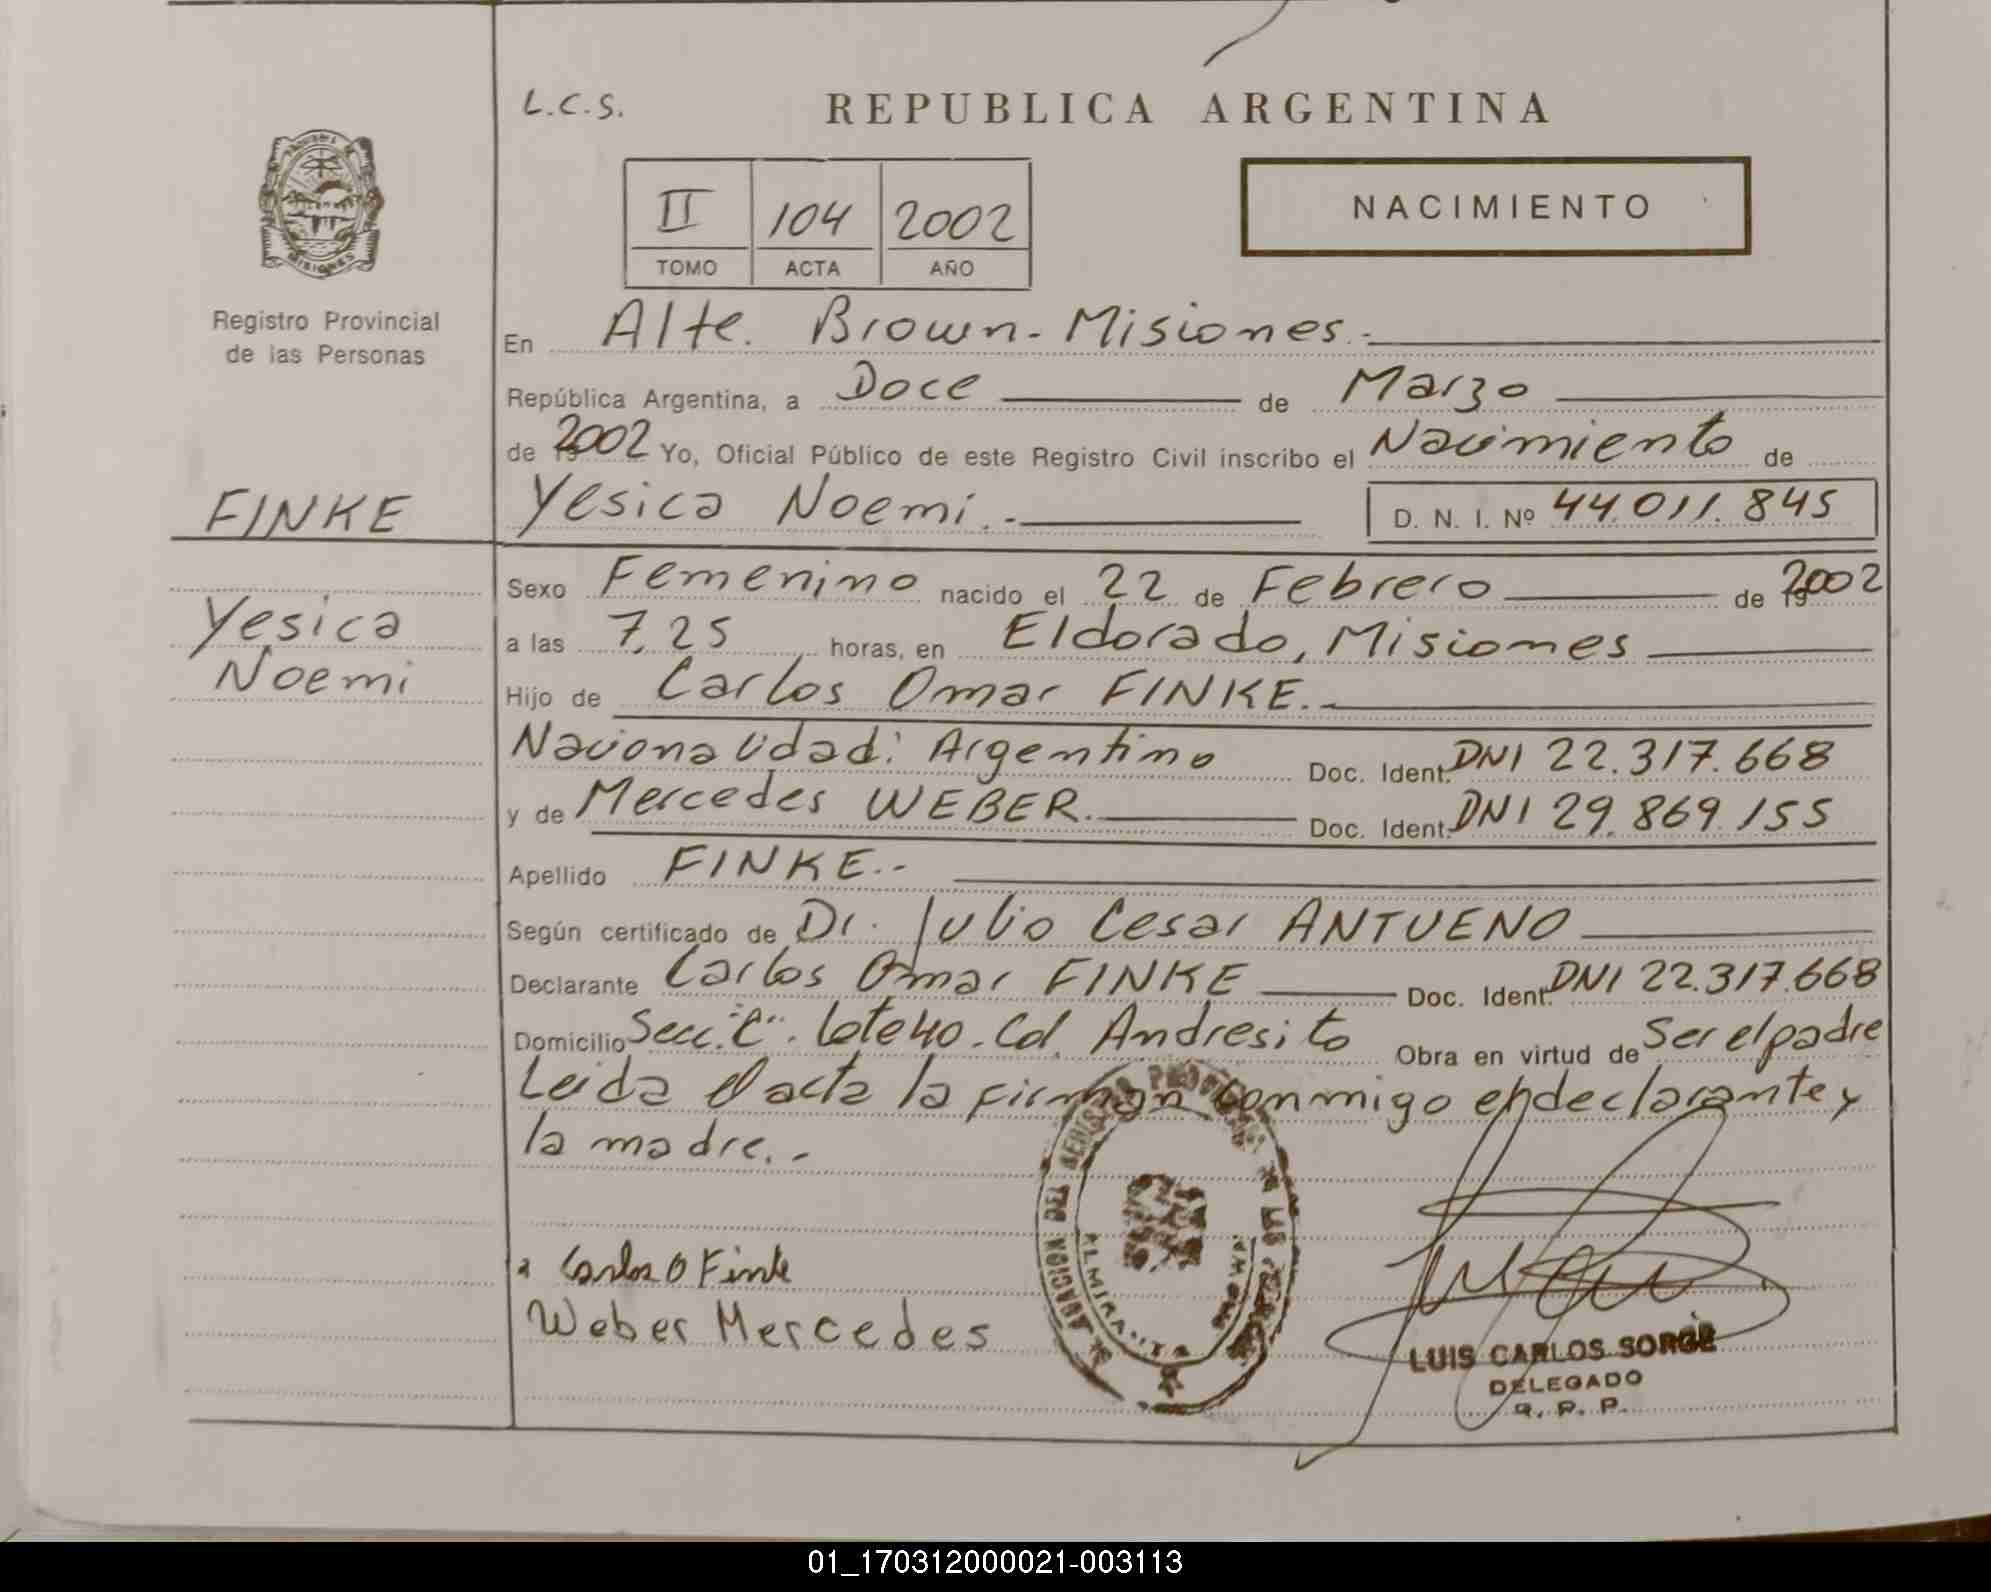 L.C.S.
REPUBLICA ARGENTINA
MISIONES
II 104 2002
TOMO ACTA AÑO
NACIMIENTO
Registro Provincial
de las Personas
En Alte. Brown - Misiones.-
República Argentina, a Doce de Marzo
de 2002 Yo, Oficial Público de este Registro Civil inscribo el Nacimiento de
FINKE
Yesica Noemi.-
D. N. I. Nº 44.011.845
Yesica
Noemi
Sexo Femenino nacido el 22 de Febrero de 2002
a las 7,25 horas, en Eldorado, Misiones
Hijo de Carlos Omar FINKE.-
Nacionalidad: Argentino Doc. Ident. DNI 22.317.668
y de Mercedes WEBER.- Doc. Ident. DNI 29.869.155
Apellido FINKE.-
Según certificado de Dr. Julio Cesar ANTUENO
Declarante Carlos Omar FINKE Doc. Ident. DNI 22.317.668
Domicilio Secc. "C". Lote 40. Col. Andresito Obra en virtud de Ser el padre
Leida el acta la firman conmigo el declarante y
la madre.-
Carlos O Finke
Weber Mercedes
LUIS CARLOS SORGE
DELEGADO
R. P. P.
01_170312000021-003113